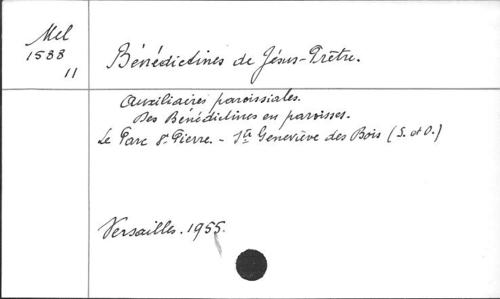 Mel
1588
11
Bénédictines de Jésus-Prêtre.
Auxiliaires paroissiales.
Des Bénédictines en paroisses.
Le Parc St Pierre. - Ste Geneviève des Bois (S. et O.)
Versailles. 1955.